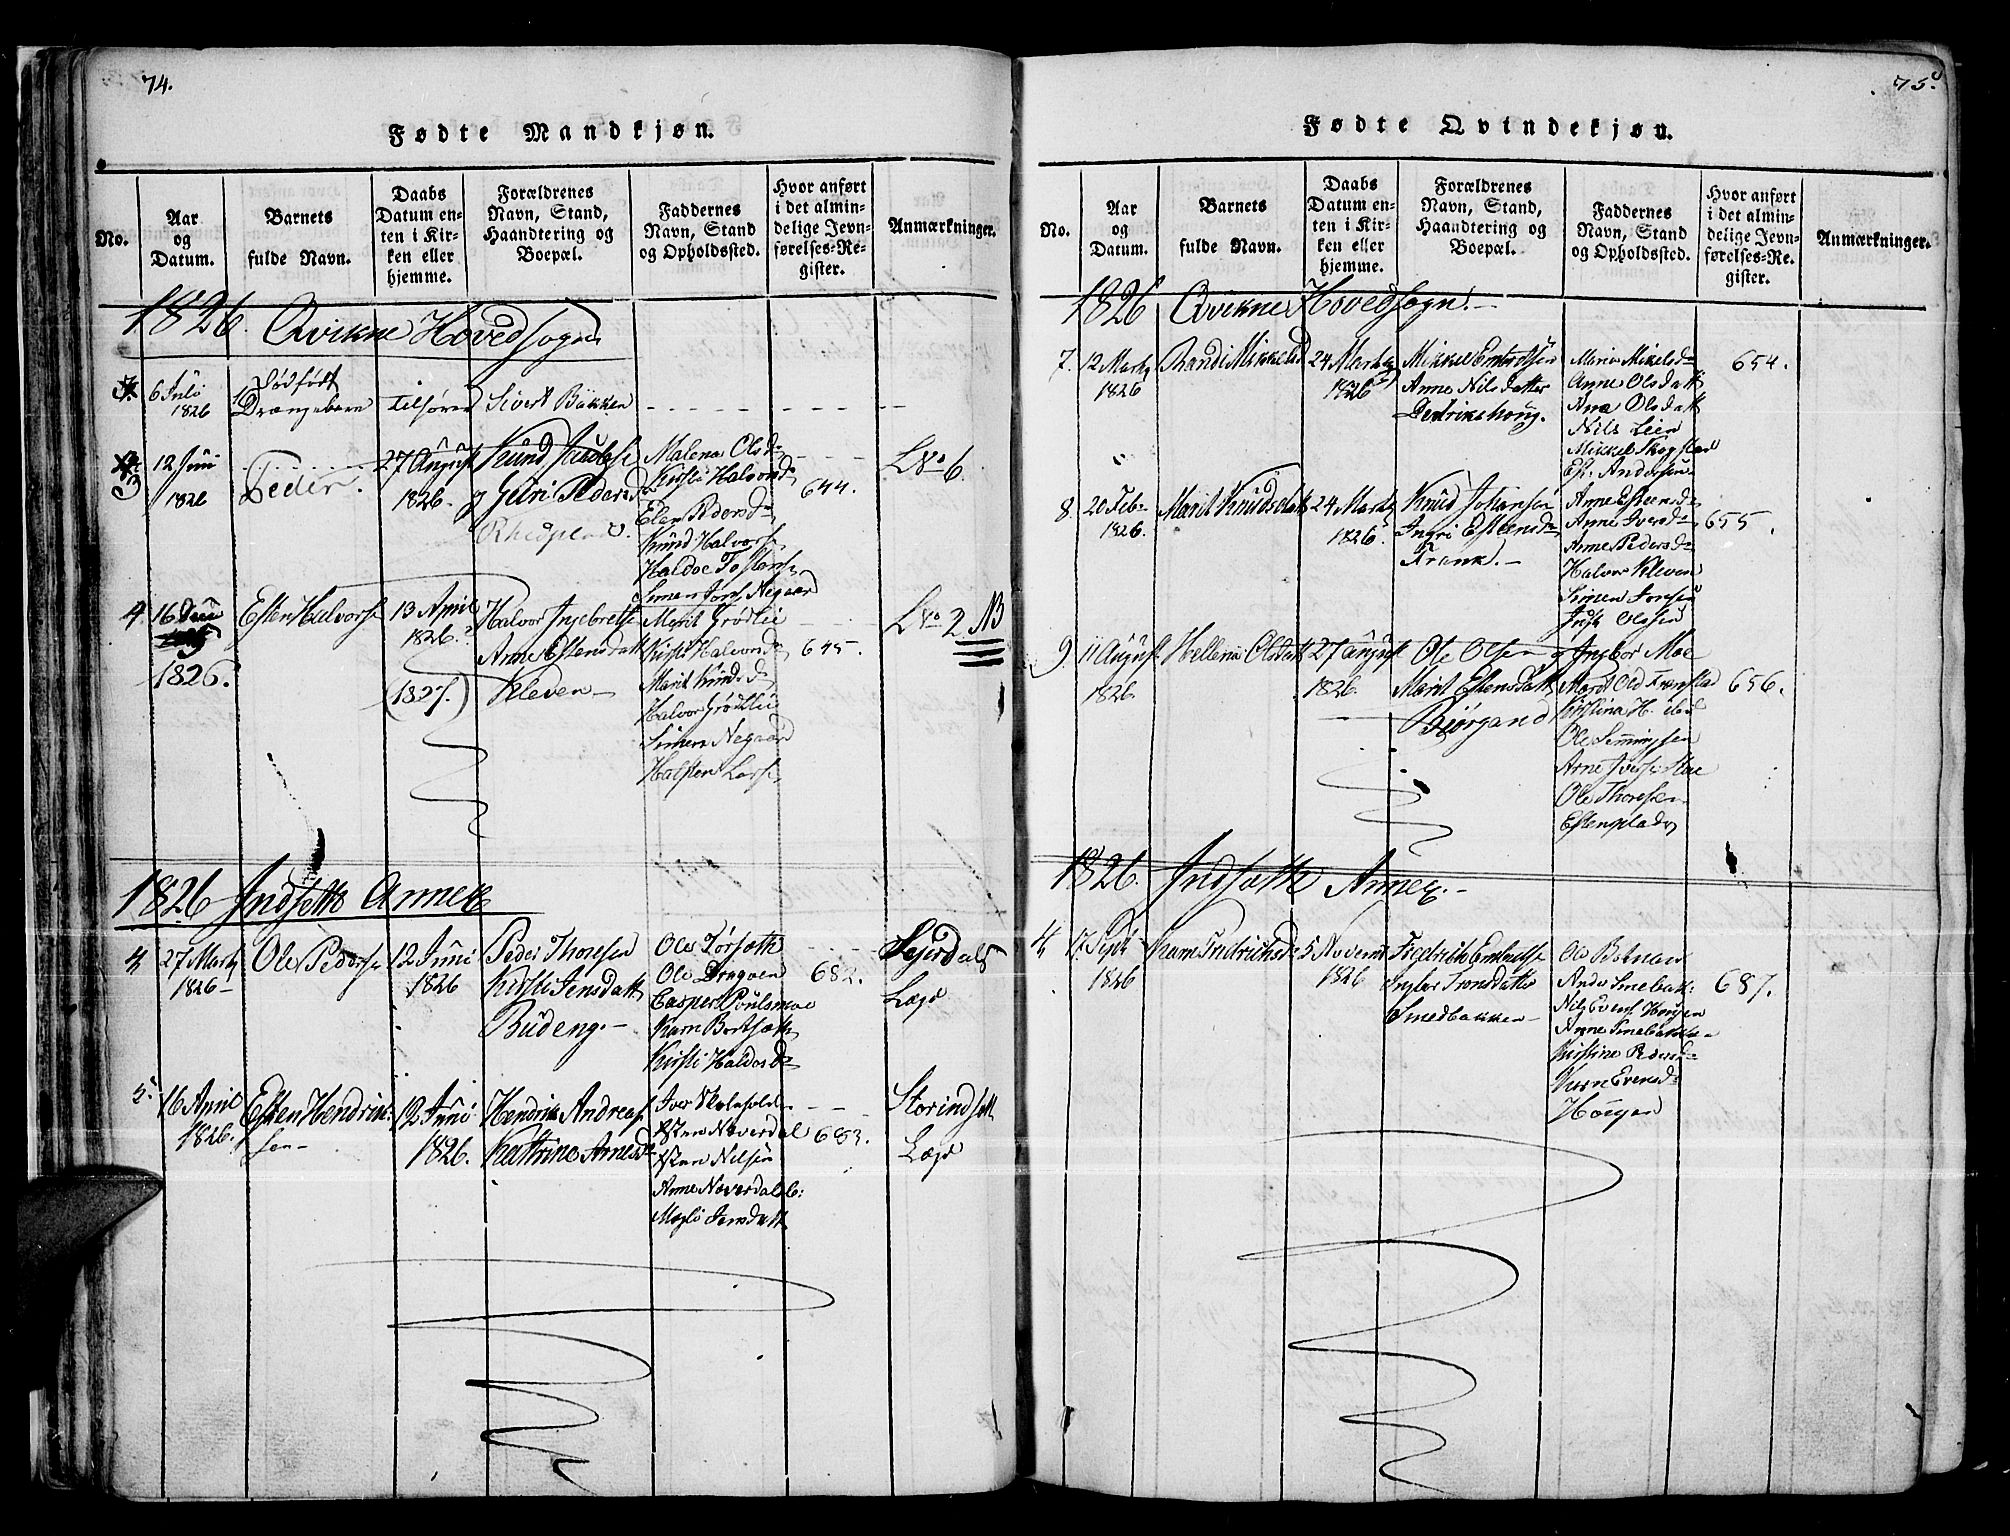 74.
Fødte Mandkjøn.
No.
Aar
og
Datum.
Barnets
fulde Navn.
Daabs
Datum en-
ten i Kir-
ken eller
hjemme.
Forældrenes
Navn, Stand,
Haandtering og
Boepæl.
Faddernes
Navn, Stand
og Opholdssted.
Hvor anført
i det almin-
delige Jevn-
førelses-Re-
gister.
Anmærkninger.
1826. Qvikne Hovedsogn
6 Juli
1826
Dødfødt
Drængebarn
tilhører
Sivert Bakken
3
12 Juni
1826
Peder.
27 August
1826.
Knud
og Guri Pedersd
Malena Olsd
Kirsti Halvorsd
Elen Pedersd
Knud Halvors
Haldoe Tostens
Simen Jons Negaard
644.
L No 6.
4.
16
1826.
Esten Halvors
13 April
1826.
(1827.)
Halvor Ingebrets
Anne Estensdatt
Kleven
Marit Grødlii
Kirsti Halvorsd
Marit Knudsd
Halvor Grødtlii
Simen Negaard
Halsten Lars
645.
L No 2 NB
1826 Indsett Annex
4
27 Marts
1826
Ole Peders
12 Juni
1826
Peder Thoresen
Kirsti Jensdatt
Budeng.
Ole
Ole Dragaen
Casper Poulsmoe
Karn Bortsæth
Kirsti Haldorsd
682.
Sejerdals
Lægd
5
16 April
1826.
Esten Hendrik-
sen
12 Juni
1826.
Hendrik Andreas
Kathrine Arnesd
Iver
Esten Næverdal
Esten Nilsen
Anne Næverdal
Magli Jensdatt
683.
Storindset
Lægd
75.
Fødte Qvindekjøn.
No.
Aar
og
Datum.
Barnets
fulde Navn.
Daabs
Datum en-
ten i Kir-
ken eller
hjemme.
Forældrenes
Navn, Stand,
Haandtering og
Boepæl.
Faddernes
Navn, Stand
og Opholdssted.
Hvor anført
i det almin-
delige Jevn-
førelses-Re-
gister.
Anmærkninger.
1826 Qvikne Hovedsogn.
7.
12 Marts
1826
Randi Mikkelsd
24 Marts
1826
Mikkel Embretsen
Anne Nilsdatter
Dedrikshoug.
Maria Mikelsd
Anne Olsdatt
Ane Olsdatt
Nils Leir
Mikkel Skogstad
Es. Andersen
654.
8.
20 Feb.
1826.
Marit Knudsdatt
24 Marts
1826.
Knud Johansen
Ingri Estensd
Frank.
Anne Estensd
Anne Iversd
Anne Pedersd
Halvor Kleven
Simen Jonsen
Just Olsen
655.
9
11 August
1826
Hellena Olsdatt
27 August
1826.
Ole Olsen og
Marit Estensdatt
Bjørgand
Ingbor Moe
Marit Old Frenstad
Kirstina H. ibid
Ole Semmingsen
Arne Ivers Moe
Ole Thoresen
Estensplads
656.
1826. Indsæth Annex.
4
17. Sept
1826
Karn Fredrichsd
5 Novemb
1826
Fredrich Embrets
Ingbor Tronsdatter
Smedbakken
Ole Botnan
Anders Smebak:
Nils Evens Hougen
Anne Smebakken
Kirstine Pedersd
Karn Evensd
Hougen
687.